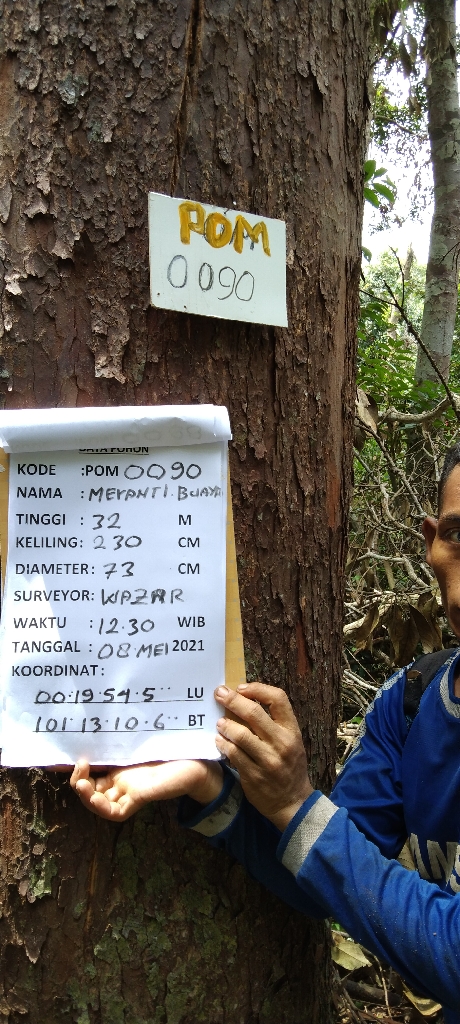 POM
0090
DATA POHON
KODE :POM 0090
NAMA : MERANTI BUAYA
TINGGI : 32 M
KELILING: 230 CM
DIAMETER: 73 CM
SURVEYOR: WAZAR
WAKTU : 12.30 WIB
TANGGAL : 08 MEI 2021
KOORDINAT :
00.19.54.5" LU
101.13.10.6" BT